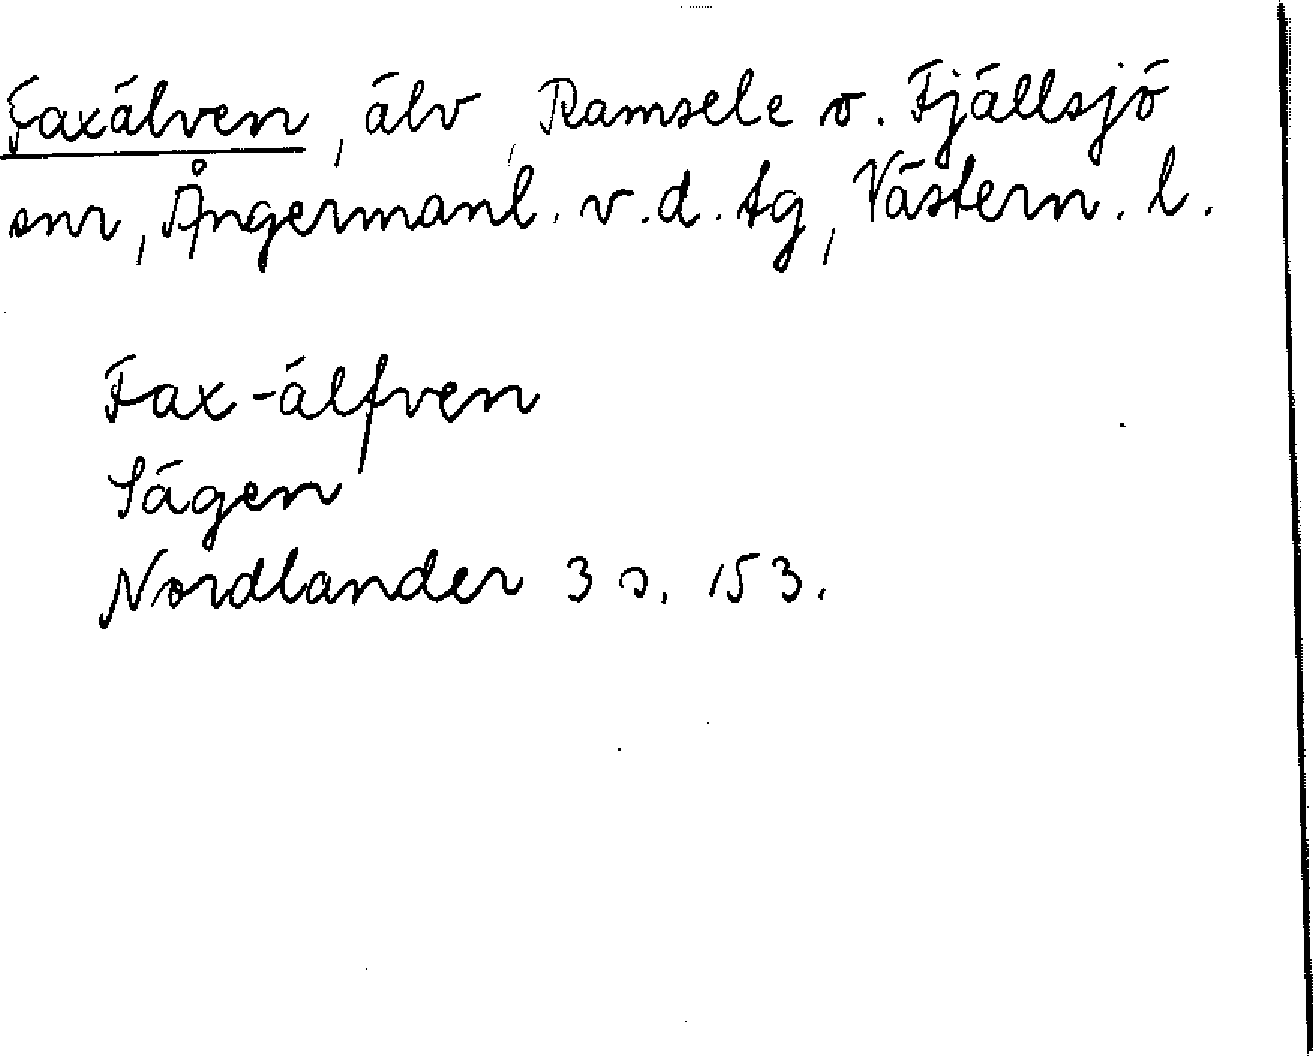 Faxälven, älv, Ramsele o. Fjällsjö
snr, Ångermanl. v. d. tg, Västern. l.
Fax-älfven
Sägen
Nordlander 3 s. 153.